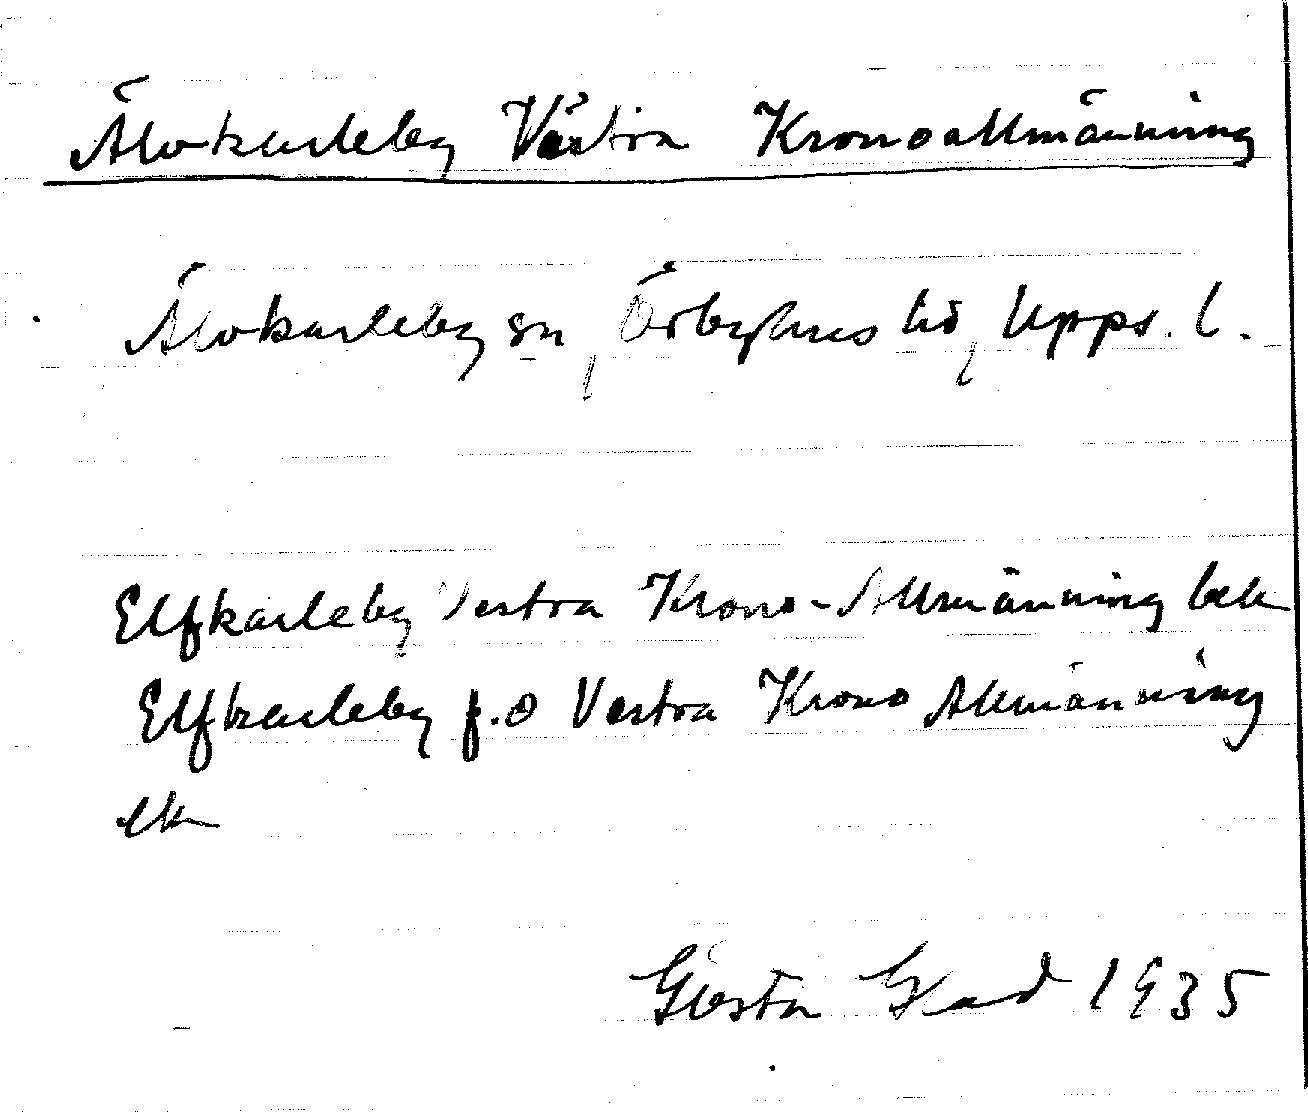 Älvkarleby Västra Kronoallmänning
Älvkarleby sn, Örbyhus hd, Upps. l.
Elfkarleby Vestra Krono-Allmänning bek
Elfkarleby f.o Vestra Krono Allmänning
ek
Gösta 1935